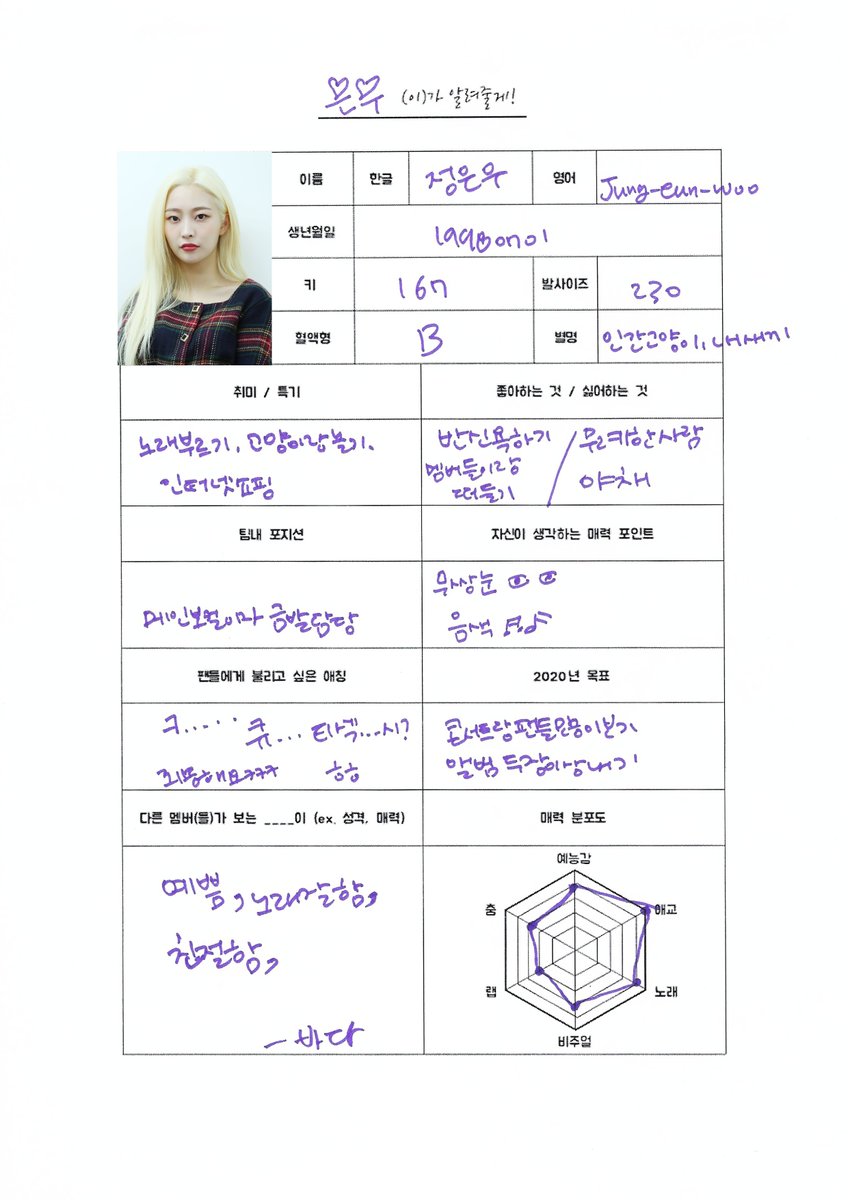 은우 (이)가 알려줄게!
이름 한글 정은우 영어 Jung-eun-woo
생년월일 19980701
키 167 발사이즈 230
혈액형 B 별명 인간고양이, 내새끼
취미 / 특기 좋아하는 것 / 싫어하는 것
노래부르기, 고양이랑놀기,
인터넷쇼핑
반신욕하기
멤버들이랑
떠들기
/ 무례한사람
야채
팀내 포지션 자신이 생각하는 매력 포인트
메인보컬이자 금발담당
무쌍눈
음색
팬들에게 불리고 싶은 애칭 2020년 목표
ㅋ.....
큐... 티섹...시?
죄똥해요ㅋㅋㅋ ㅎㅎ
콘서트랑팬들만이보기
앨범두장이상내기
다른 멤버(들)가 보는 ____이 (ex. 성격, 매력) 매력 분포도
예쁨, 노래잘함,
친절함,
- 바다
예능감
애교
노래
비주얼
랩
춤